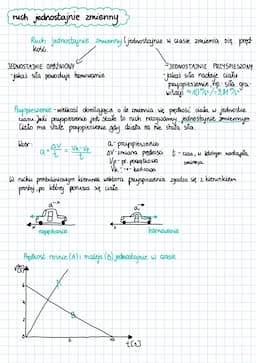 ruch jednostajnie zmienny
Ruch jednostajnie zmienny (jednostajnie w czasie zmienia się pręd
kość.
JEDNOSTAJNIE OPÓŹNIONY
-jakaś siła powoduje hamowanie
JEDNOSTAJNIE PRZYSPIESZONY
-jakaś siła nadaje ciału
przyspieszenie, np. siła gra-
witacji
Przyspieszenie - wielkość określająca o ile zmienia się prędkość ciała w jednostce
czasu. Jeśli przyspieszenie jest stałe to ruch nazywamy jednostajnie zmiennym
Ciało ma stałe przyspieszenie gdy działa na nie stała siła.
Wzór:
a = ΔV/t = Vk-Vp/t
a - przyspieszenie
ΔV - zmiana prędkości
Vp - pr. początkowa
Vk - końcowa
t - czas, w którym nastąpiła
zmiana
W ruchu prostoliniowym kierunek wektora przyspieszenia zgadza się z kierunkiem
prostej, po której porusza się ciało
a
a
rozpędzanie
hamowanie
Prędkość rośnie (A) i maleje (B) jednostajnie w czasie
B
t[s]